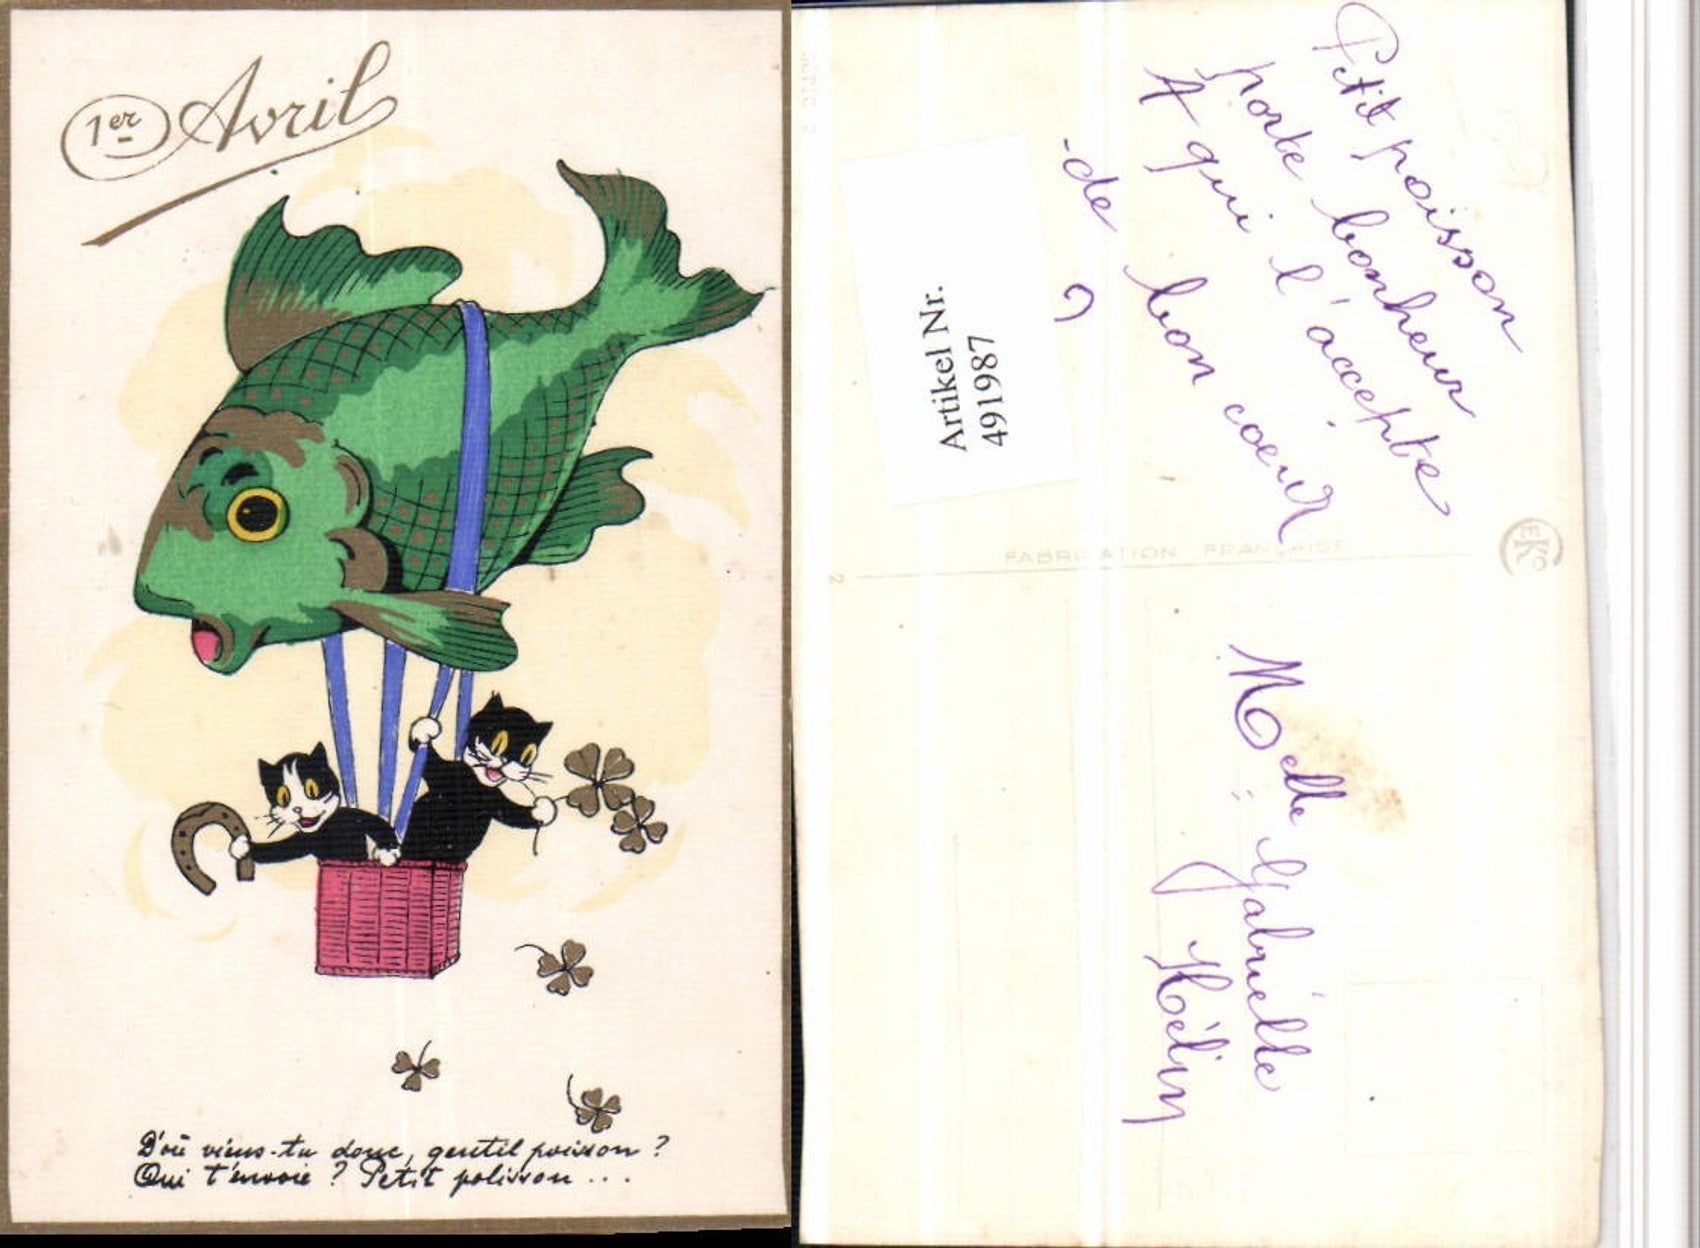 1er Avril
D'où viens-tu donc, gentil poisson ?
Qui t'envoie ? Petit polisson ...
Petit poisson
porte bonheur
A qui l'accepte
de bon coeur
?
Artikel Nr.
491987
FABRICATION FRANÇAISE
2
Melle Gabrièlle
Hélin